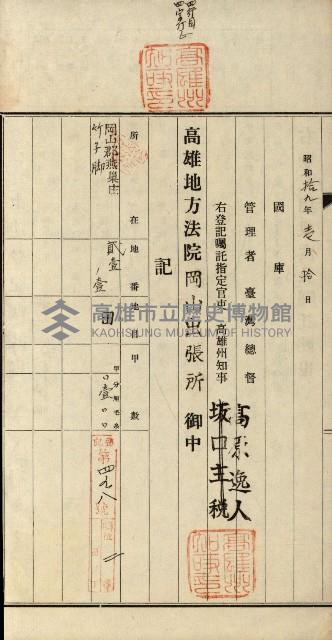 昭和拾九年壱月拾日
國庫
管理者臺灣總督
右登記囑託指定官吏 高雄州知事
高原逸人
坂口主税
高雄地方法院岡山出張所 御中
記
所在 地番 地目 甲數
甲分厘毛糸
岡山郡燕巢庄
竹子脚
貳壹
壹
田
壹
第四九八號
高雄市立歷史博物館
KAOHSIUNG MUSEUM OF HISTORY